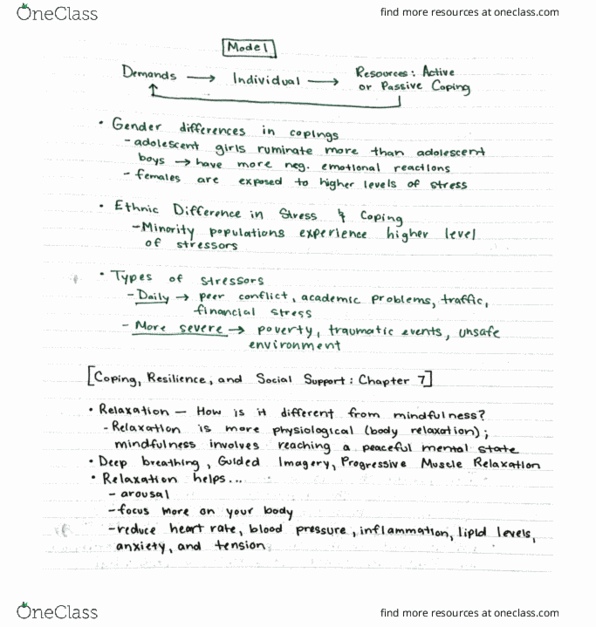 OneClass
find more resources at oneclass.com
Model
Demands → Individual → Resources: Active
or Passive Coping
• Gender differences in copings
- adolescent girls ruminate more than adolescent
boys → have more neg. emotional reactions
- females are exposed to higher levels of stress
• Ethnic Difference in Stress & Coping
- Minority populations experience higher level
of stressors
• Types of stressors
- Daily → peer conflict, academic problems, traffic,
financial stress
- More severe → poverty, traumatic events, unsafe
environment
[Coping, Resilience, and Social Support: Chapter 7]
• Relaxation — How is it different from mindfulness?
- Relaxation is more physiological (body relaxation);
mindfulness involves reaching a peaceful mental state
• Deep breathing, Guided Imagery, Progressive Muscle Relaxation
• Relaxation helps...
- arousal
- focus more on your body
- reduce heart rate, blood pressure, inflammation, lipid levels,
anxiety, and tension
OneClass
find more resources at oneclass.com